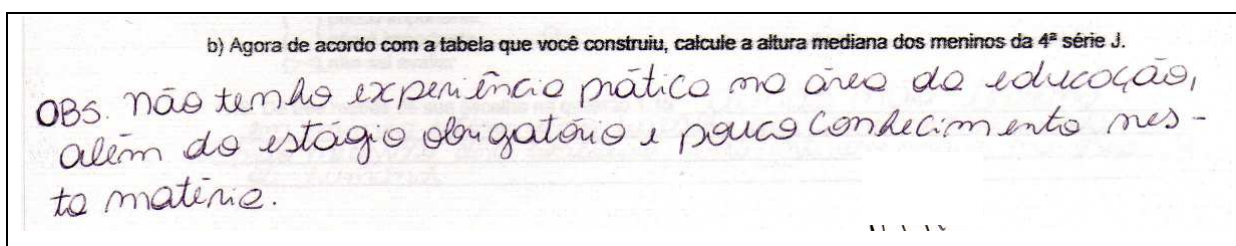 b) Agora de acordo com a tabela que você construiu, calcule a altura mediana dos meninos da 4ª série J.
OBS. não tenho experiência prática na área da educação,
além do estágio obrigatório e pouco conhecimento nes-
ta matéria.